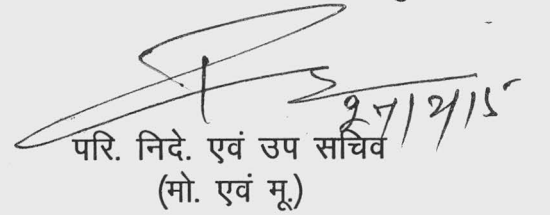 परि. निदे. एवं उप सचिव
(मो. एवं मू.)